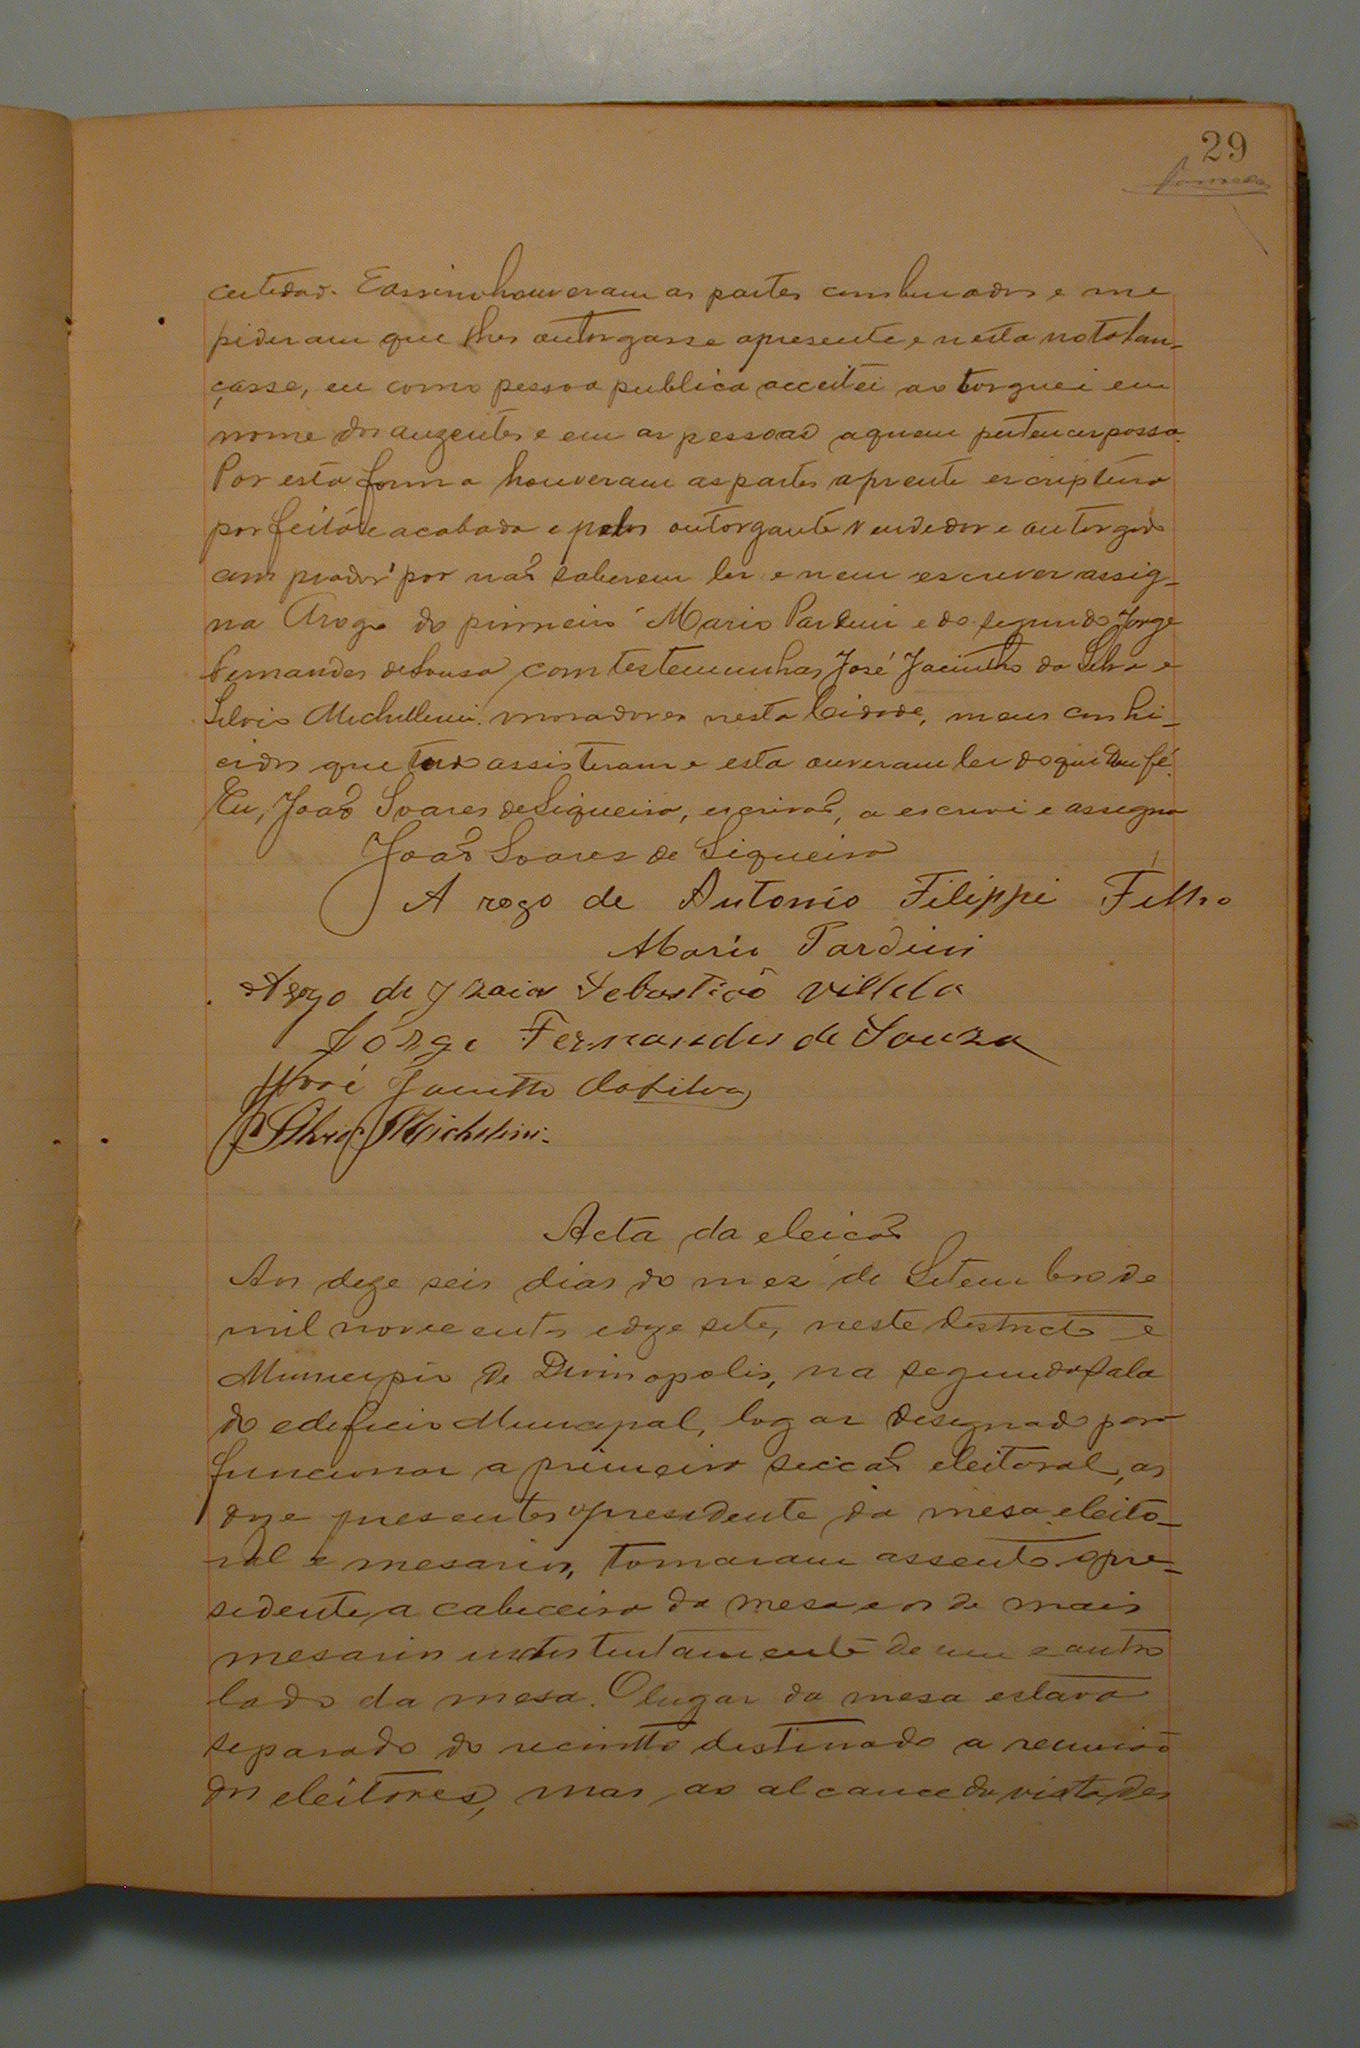 29
E assim houveram as partes combinados e me
pideram que lhes outorgasse apresente e nesta nota lan-
çasse, eu como pessoa publica acceitei ao torguei em
nome dos auzentes e em as pessoas aquem pertencer possa.
Por esta forma houveram as partes aprente escriptura
por feitó e acabada e pelos outorgante vendedor e outorgado
com prador por não saberem ler e nem escrever assig-
na Arogo do primeiro Mario Pardini e do segundo Jorge
Fernandes de Sousa com testemunhas José Jacintho da Silva e
Silvio Michellini moradores nesta Cidade, meus conhi-
cidos que tudo assisteram e esta ouveram ler do que dou fé.
Eu, João Soares de Siqueira, escrivão, a escrevi e assigno
João Soares de Siqueira
A rogo de Antonio Filippi Filho
Mario Pardini
Arogo de Izaias Sebastião Villela
Jorge Fernandes de Souza
José Jacintho da Silva
Silvio Michelini.
Acta da eleicão
Aos deze seis dias do mez de Setembro de
mil novecentos e deze sete, neste destricto e
Municipio de Divinopolis, na segunda Sala
do edeficio Municipal, logar designado para
funccionar a primeira seccão eleitoral, as
doze presentes o presidente da mesa eleito-
ral e mesarios, tomaram assento o pre-
sidente, a cabeceira da mesa e os de mais
mesarios de um e outro
lado da mesa. O lugar da mesa estava
separado do recintto destinado a reunião
dos eleitores, mas ao alcance da vista des